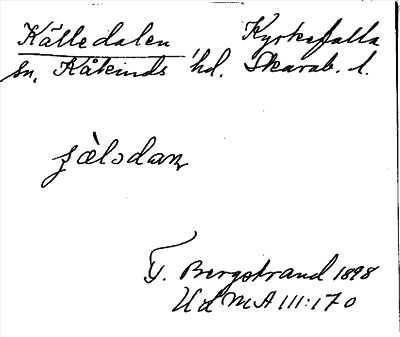 Källedalen Kyrkefalla
sn, Kåkinds hd. Skarab. l.
jàlɔdan
T. Bergstrand 1898
UdMA III:170